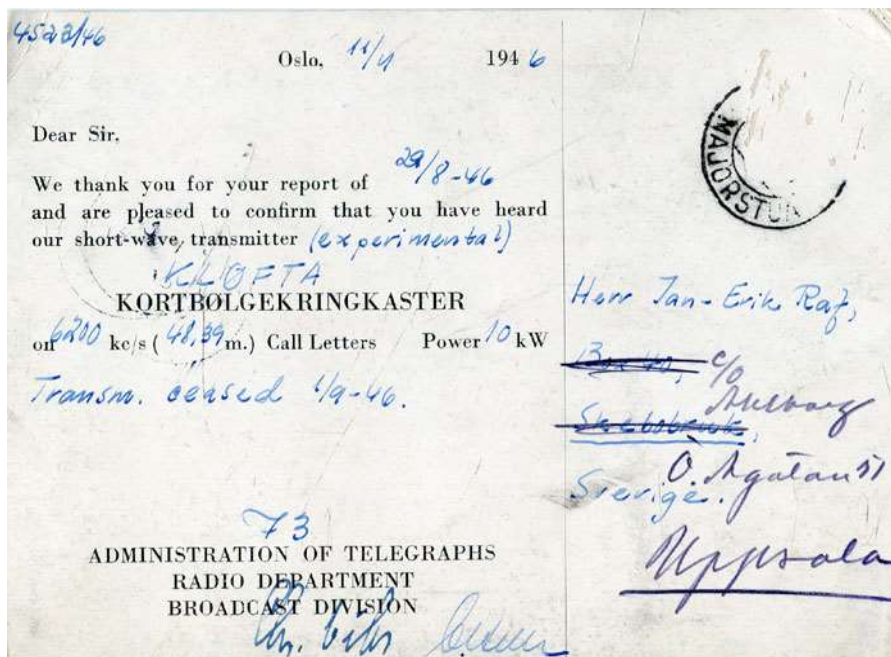 4523/46
Oslo, 11/11 1946
Dear Sir,
We thank you for your report of 29/8-46
and are pleased to confirm that you have heard
our short-wave transmitter (experimental)
KLØFTA
KORTBØLGEKRINGKASTER
on 6200 kc/s (48,39 m.) Call Letters Power 10 kW
Transm. ceased 1/9-46.
73
ADMINISTRATION OF TELEGRAPHS
RADIO DEPARTMENT
BROADCAST DIVISION
MAJORSTUA
Herr Jan-Erik Raf,
Box 40,
c/o
Skebobruk,
Ö. Ågatan 51
Sverige.
Uppsala